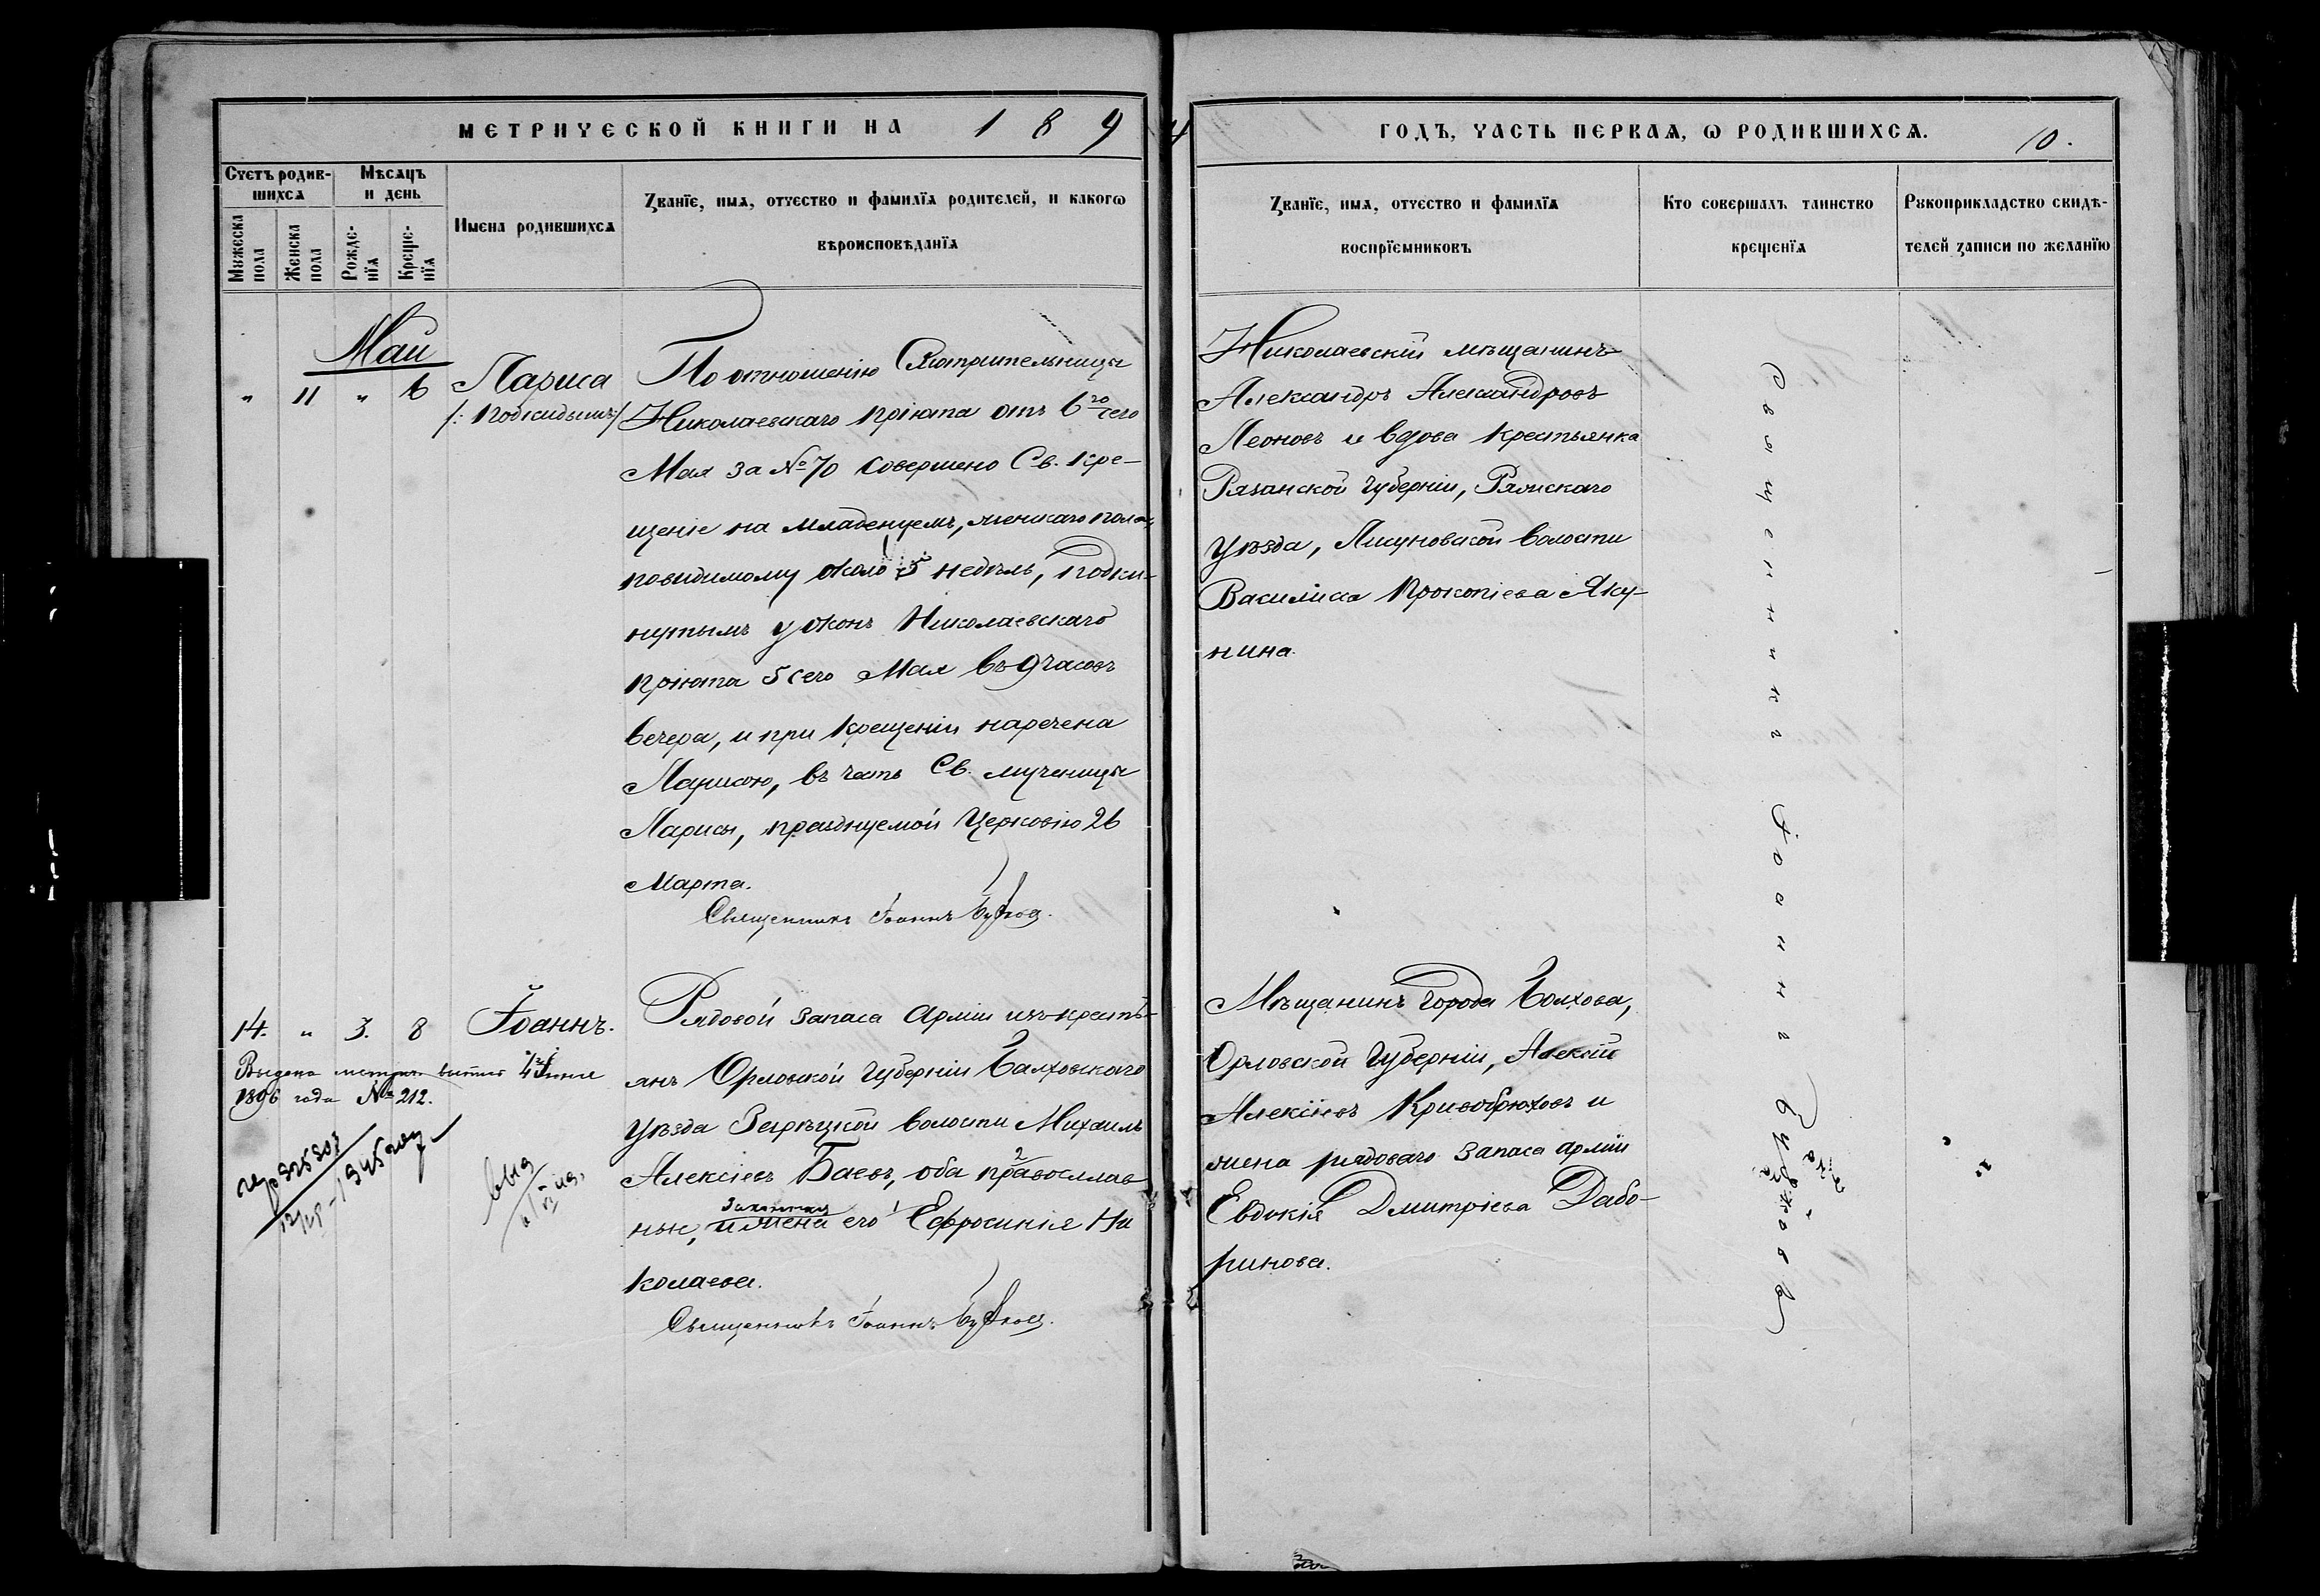 МЕТРИЧЕСКОЙ КНИГИ НА 1894
ГОДЪ, ЧАСТЬ ПЕРВАѦ, Ѡ РОДИВШИХСѦ.
10.
Счетъ родив-
шихсѧ
Мѣсѧцъ
и день
Мꙋжеска
пола
Женска
пола
Рожде-
нїѧ
Креще-
нїѧ
Имена родившихсѧ
Ꙁванїе, имѧ, отчество и фамилїѧ родителей, и какогѡ
вѣроисповѣданїѧ
Ꙁванїе, имѧ, отчество и фамилїѧ
воспрїемниковъ
Кто совершалъ таинство
крещенїѧ
Рꙋкоприкладство свидѣ-
телей ꙁаписи по желанїю
Маи
" 11 " 6
Лариса
/: подкидышъ :/
По отношенію Смотрительницы
Николаевскаго пріюта отъ 6го сего
Мая за № 70 совершено Св. Кре-
щеніе на младенцемъ, женскаго пола,
повидимому около 5 недѣль, подки-
нутымъ у оконъ Николаевскаго
пріюта 5 сего Мая въ 9 часовъ
вечера, и при Крещеніи наречена
Ларисою, въ честь Св. мученицы
Ларисы, празднуемой Церковію 26
Марта.
Священникъ Іоаннъ
Николаевскій мѣщанинъ
Александръ Александровъ
Леоновъ и вдова крестьянка
Рязанской губерніи, Ряжскаго
уѣзда, волости
Василиса Прокопіева Яку-
нина.
Священникъ Іоаннъ
14. " 3. 8
Іоаннъ.
Выдана метрич. выпись Іюня
1896 года № 212.
1945 году
Рядовой запаса арміи изъ крестъ-
янъ Орловской губерніи Болховскаго
уѣзда волости Михаилъ
Алексіевъ Баевъ, оба 2 православ
ные, и законная жена его 1 Ефросинія Ни
колаева.
Священникъ Іоаннъ
Мѣщанинъ города Болхова,
Орловской губерніи, Алексій
Алексіевъ Кривобрюховъ и
жена рядоваго запаса арміи
Евдокія Димитріева Дабо-
ринова.